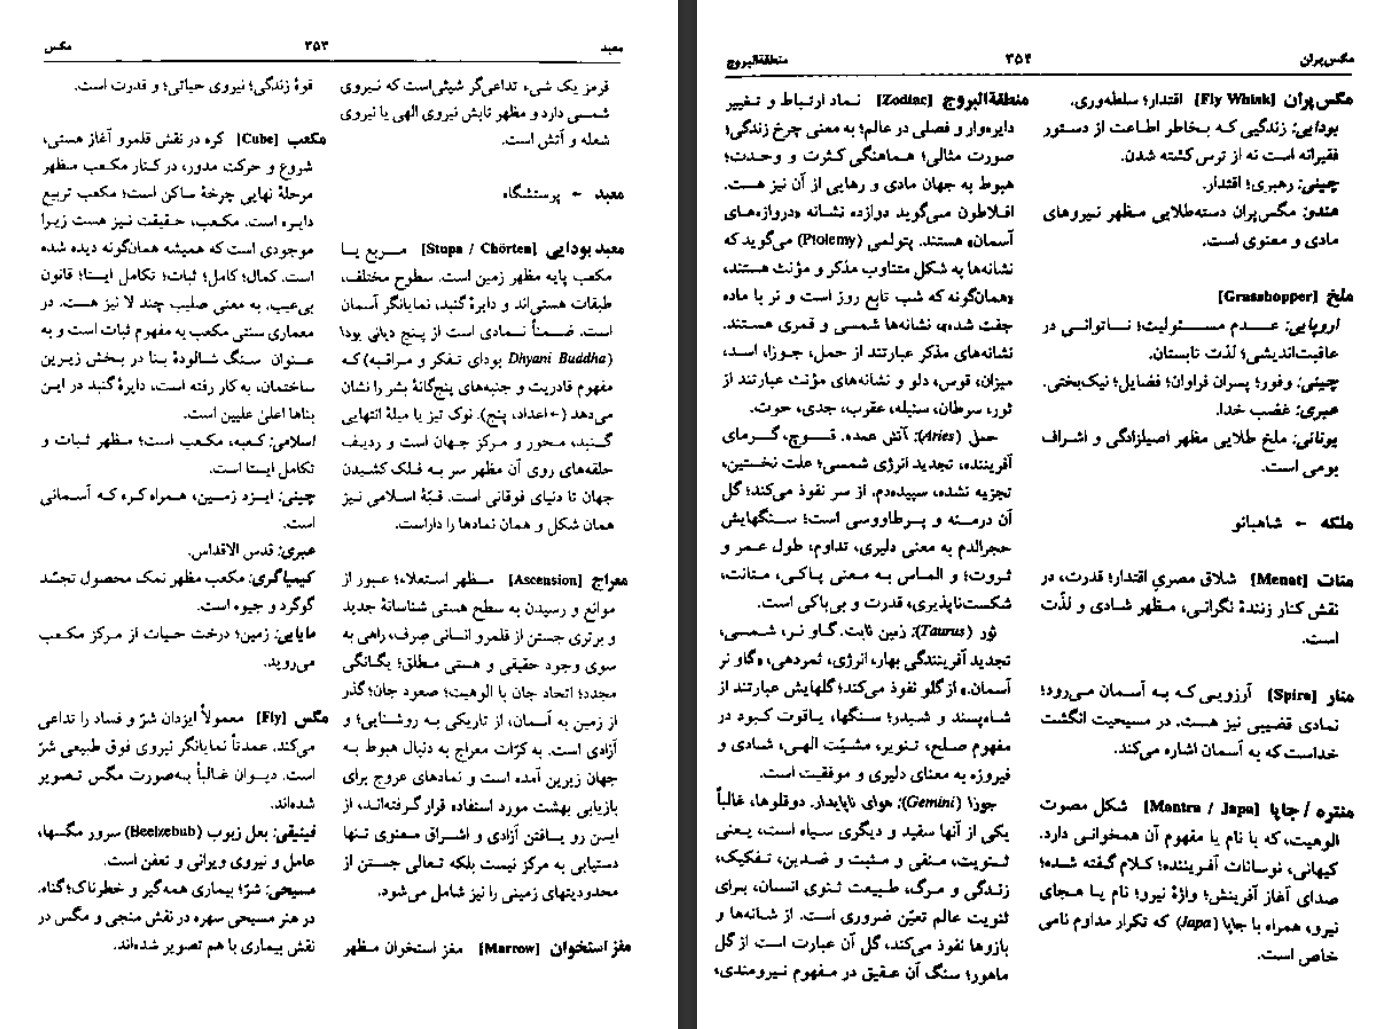 معبد ۳۵۳ مگس
قرمز یک شیء تداعی‌گر شیئی‌است که نیروی
شمسی دارد و مظهر تابش نیروی الهی یا نیروی
شعله و آتش است.
معبد ← پرستشگاه
معبد بودایی [Stupa / Chörten] مربع یا
مکعب پایه مظهر زمین است. سطوح مختلف،
طبقات هستی‌اند و دایرهٔ گنبد، نمایانگر آسمان
است. ضمناً نمادی است از پنج دیانی بودا
(Dhyani Buddha بودای تفکر و مراقبه) که
مفهوم قادریت و جنبه‌های پنج‌گانهٔ بشر را نشان
می‌دهد (←اعداد، پنج). نوک تیز یا میلهٔ انتهایی
گنبد، محور و مرکز جهان است و ردیف
حلقه‌های روی آن مظهر سر به فلک کشیدن
جهان تا دنیای فوقانی است. قبّهٔ اسلامی نیز
همان شکل و همان نمادها را داراست.
معراج [Ascension] مظهر استعلاء؛ عبور از
موانع و رسیدن به سطح هستی شناسانهٔ جدید
و برتری جستن از قلمرو انسانی صرف، راهی به
سوی وجود حقیقی و هستی مطلق؛ یگانگی
مجدد؛ اتحاد جان با الوهیت؛ صعود جان؛ گذر
از زمین به آسمان، از تاریکی به روشنایی؛ و
آزادی است. به کرّات معراج به دنبال هبوط به
جهان زیرین آمده است و نمادهای عروج برای
بازیابی بهشت مورد استفاده قرار گرفته‌اند، از
این رو یافتن آزادی و اشراق معنوی تنها
دستیابی به مرکز نیست بلکه تعالی جستن از
محدودیتهای زمینی را نیز شامل می‌شود.
مغز استخوان [Marrow] مغز استخوان مظهر
قوهٔ زندگی؛ نیروی حیاتی؛ و قدرت است.
مکعب [Cube] کره در نقش قلمرو آغاز هستی،
شروع و حرکت مدور، در کنار مکعب مظهر
مرحلهٔ نهایی چرخهٔ ساکن است؛ مکعب تربیع
دایره است. مکعب، حقیقت نیز هست زیرا
موجودی است که همیشه همان‌گونه دیده شده
است. کمال؛ کامل؛ ثبات؛ تکامل ایستا؛ قانون
بی‌عیب. به معنی صلیب چند لا نیز هست. در
معماری سنتی مکعب به مفهوم ثبات است و به
عنوان سنگ شالودهٔ بنا در بخش زیرین
ساختمان، به کار رفته است، دایرهٔ گنبد در این
بناها اعلیٰ علیین است.
اسلامی: کعبه، مکعب است؛ مظهر ثبات و
تکامل ایستا است.
چینی: ایزد زمین، همراه کره که آسمانی
است.
عبری: قدس الاقداس.
کیمیاگری: مکعب مظهر نمک محصول تجسّد
گوگرد و جیوه است.
مایایی: زمین؛ درخت حیات از مرکز مکعب
می‌روید.
مگس [Fly] معمولاً ایزدان شرّ و فساد را تداعی
می‌کند. عمدتاً نمایانگر نیروی فوق طبیعی شرّ
است. دیوان غالباً به‌صورت مگس تصویر
شده‌اند.
فینیقی: بعل زبوب (Beelzebub) سرور مگسها،
عامل و نیروی ویرانی و تعفن است.
مسیحی: شرّ؛ بیماری همه‌گیر و خطرناک؛ گناه.
در هنر مسیحی سهره در نقش منجی و مگس در
نقش بیماری با هم تصویر شده‌اند.
مگس‌پران ۳۵۴ منطقةالبروج
مگس‌پران [Fly Whisk] اقتدار؛ سلطه‌وری.
بودایی: زندگیی که بخاطر اطاعت از دستور
فقیرانه است نه از ترس کشته شدن.
چینی: رهبری؛ اقتدار.
هندو: مگس‌پران دسته‌طلایی مظهر نیروهای
مادی و معنوی است.
ملخ [Grasshopper]
اروپایی: عدم مسئولیت؛ ناتوانی در
عاقبت‌اندیشی؛ لذت تابستان.
چینی: وفور؛ پسران فراوان؛ فضایل؛ نیک‌بختی.
عبری: غضب خدا.
یونانی: ملخ طلایی مظهر اصیلزادگی و اشراف
بومی است.
ملکه ← شاهبانو
منات [Menat] شلاق مصریِ اقتدار؛ قدرت، در
نقش کنار زنندهٔ نگرانی، مظهر شادی و لذّت
است.
منار [Spire] آرزویی که به آسمان می‌رود؛
نمادی قضیبی نیز هست. در مسیحیت انگشت
خداست که به آسمان اشاره می‌کند.
منتره / جاپا [Mantra / Japa] شکل مصوت
الوهیت، که با نام یا مفهوم آن همخوانی دارد.
کیهانی، نوسانات آفریننده؛ کلام گفته شده؛
صدای آغاز آفرینش؛ واژهٔ نیرو؛ نام یا هجای
نیرو، همراه با جاپا (Japa) که تکرار مداوم نامی
خاص است.
منطقةالبروج [Zodiac] نماد ارتباط و تغییر
دایره‌وار و فصلی در عالم؛ به معنی چرخ زندگی؛
صورت مثالی؛ هماهنگی کثرت و وحدت؛
هبوط به جهان مادی و رهایی از آن نیز هست.
افلاطون می‌گوید دوازده نشانه «دروازه‌های
آسمان» هستند. پتولمی (Ptolemy) می‌گوید که
نشانه‌ها به شکل متناوب مذکر و مؤنث هستند،
«همان‌گونه که شب تابع روز است و نر با ماده
جفت شده»، نشانه‌ها شمسی و قمری هستند.
نشانه‌های مذکر عبارتند از حمل، جوزا، اسد،
میزان، قوس، دلو و نشانه‌های مؤنث عبارتند از
ثور، سرطان، سنبله، عقرب، جدی، حوت.
حمل (Aries): آتش عمده. قوچ، گرمای
آفریننده، تجدید انرژی شمسی؛ علت نخستین،
تجزیه نشده، سپیده‌دم. از سر نفوذ می‌کند؛ گل
آن درمنه و پرطاووسی است؛ سنگهایش
حجرالدم به معنی دلیری، تداوم، طول عمر و
ثروت؛ و الماس به معنی پاکی، متانت،
شکست‌ناپذیری، قدرت و بی‌باکی است.
ثور (Taurus): زمین ثابت. گاو نر، شمسی،
تجدید آفرینندگی بهار، انرژی، ثمردهی، «گاو نر
آسمان.» از گلو نفوذ می‌کند؛ گلهایش عبارتند از
شاه‌پسند و شبدر؛ سنگها، یاقوت کبود در
مفهوم صلح، تنویر، مشیّت الهی، شادی و
فیروزه به معنای دلیری و موفقیت است.
جوزا (Gemini): هوای ناپایدار. دوقلوها، غالباً
یکی از آنها سفید و دیگری سیاه است، یعنی
ثنویت، منفی و مثبت و ضدین، تفکیک،
زندگی و مرگ، طبیعت ثنوی انسان، برای
ثنویت عالم تعیّن ضروری است. از شانه‌ها و
بازوها نفوذ می‌کند، گل آن عبارت است از گل
ماهور؛ سنگ آن عقیق در مفهوم نیرومندی،